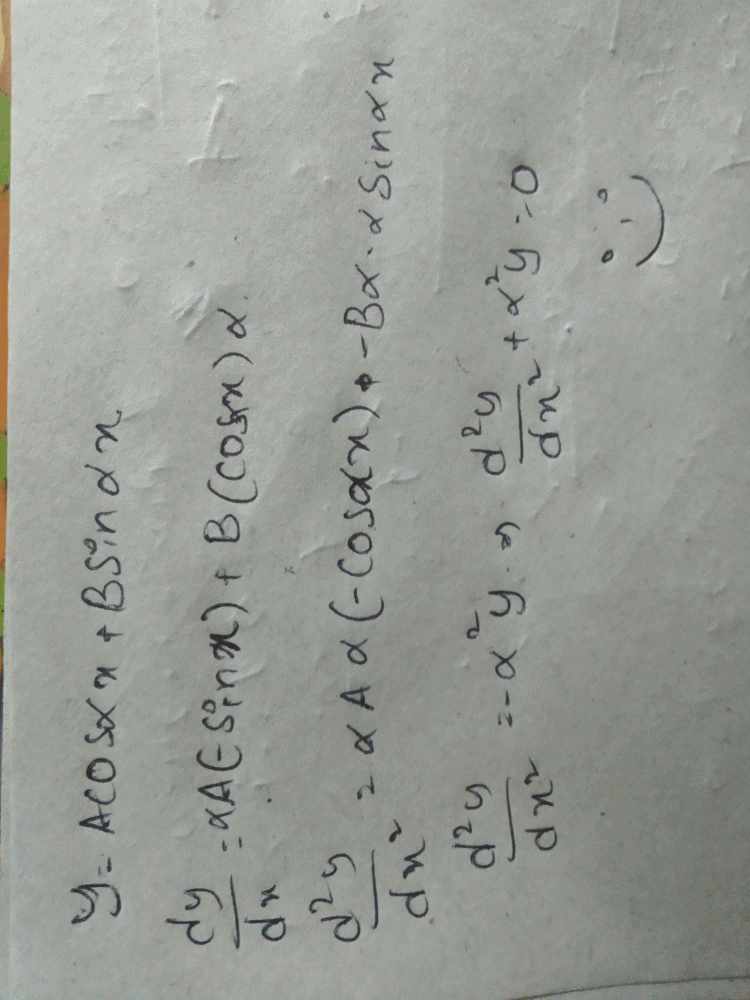 y = A cos αx + B sin αx
dy/dx = αA(-sin x) + B(cos x)α
d²y/dx² = αAα(-cos αx) + -Bα·α sin αx
d²y/dx² = -α²y ⇒ d²y/dx² + α²y = 0